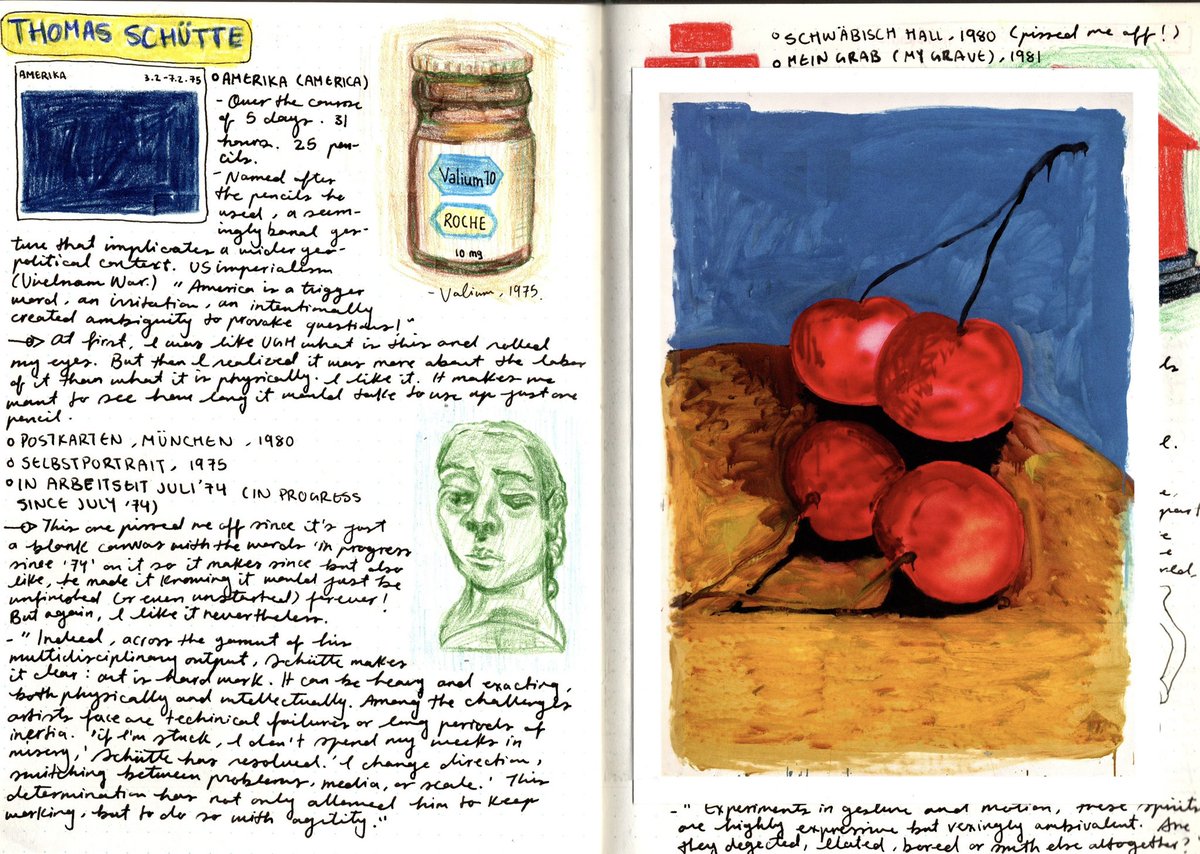 THOMAS SCHÜTTE
AMERIKA 3.2-7.2.75
○ AMERIKA (AMERICA)
- Over the course
of 5 days. 31
hours. 25 pen-
cils.
- Named after
the pencils he
used, a seem-
ingly banal ges-
ture that implicates a wider geo-
political context. US imperialism
(Vietnam War.) "America is a trigger
word, an irritation, an intentionally
created ambiguity to provoke questions!"
→ At first, I was like UGH what is this and rolled
my eyes. But then I realized it was more about the labor
of it than what it is physically. I like it. It makes me
want to see how long it would take to use up just one
pencil.
Valium 10
ROCHE
10 mg
- Valium, 1975.
○ POSTKARTEN, MÜNCHEN, 1980
○ SELBSTPORTRAIT, 1975
○ IN ARBEITSEIT JULI '74 (IN PROGRESS
SINCE JULY '74)
→ This one pissed me off since it's just
a blank canvas with the words 'in progress
since '74' on it so it makes since but also
like, he made it knowing it would just be
unfinished (or even unstarted) forever!
But again, I like it nevertheless.
- "Indeed, across the gamut of his
multidisciplinary output, Schütte makes
it clear: art is hard work. It can be heavy and exacting,
both physically and intellectually. Among the challenges
artists face are technical failures or long periods of
inertia. 'if I'm stuck, I don't spend my weeks in
misery,' Schütte has resolved. 'I change direction,
switching between problems, media, or scale.' This
determination has not only allowed him to keep
working, but to do so with agility."
○ SCHWÄBISCH HALL, 1980 (pissed me off!)
○ MEIN GRAB (MY GRAVE), 1981
- "Experiments in gesture and motion, these spirits
are highly expressive but vexingly ambivalent. Are
they dejected, elated, bored or smth else altogether?